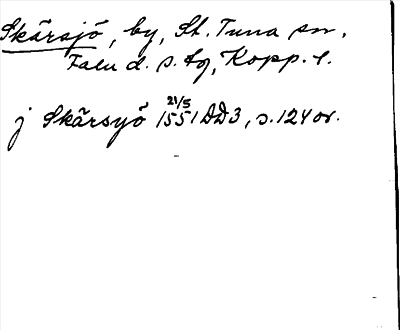 Skärsjö, by, St. Tuna sn.
Falu d. s. tg, Kopp. l.
j Skärsyö 21/5 1551 DD3, s. 124 or.